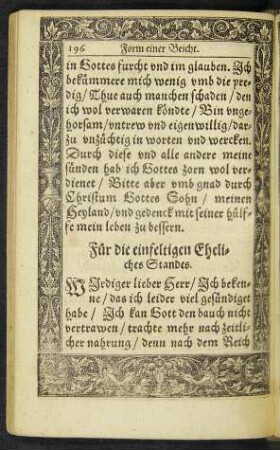 196 Form einer Beicht.
in Gottes furcht vnd im glauben. Ich
bekümmere mich wenig vmb die pre-
dig/ Thue auch manchen schaden/ den
ich wol verwaren köndte/ Bin vnge-
horsam/ vntrew vnd eigenwillig/ dar-
zu vnzüchtig in worten vnd wercken.
Durch diese vnd alle andere meine
sünden hab ich Gottes zorn wol ver-
dienet/ Bitte aber vmb gnad durch
Christum Gottes Sohn/ meinen
Heyland/ vnd gedenck mit seiner hülf-
fe mein leben zu bessern.
Für die einfeltigen Eheli-
ches Standes.
WIrdiger lieber Herr/ Ich beken-
ne/ das ich leider viel gesündiget
habe/ Ich kan Gott den bauch nicht
vertrawen/ trachte mehr nach zeitli-
cher nahrung/ denn nach dem Reich